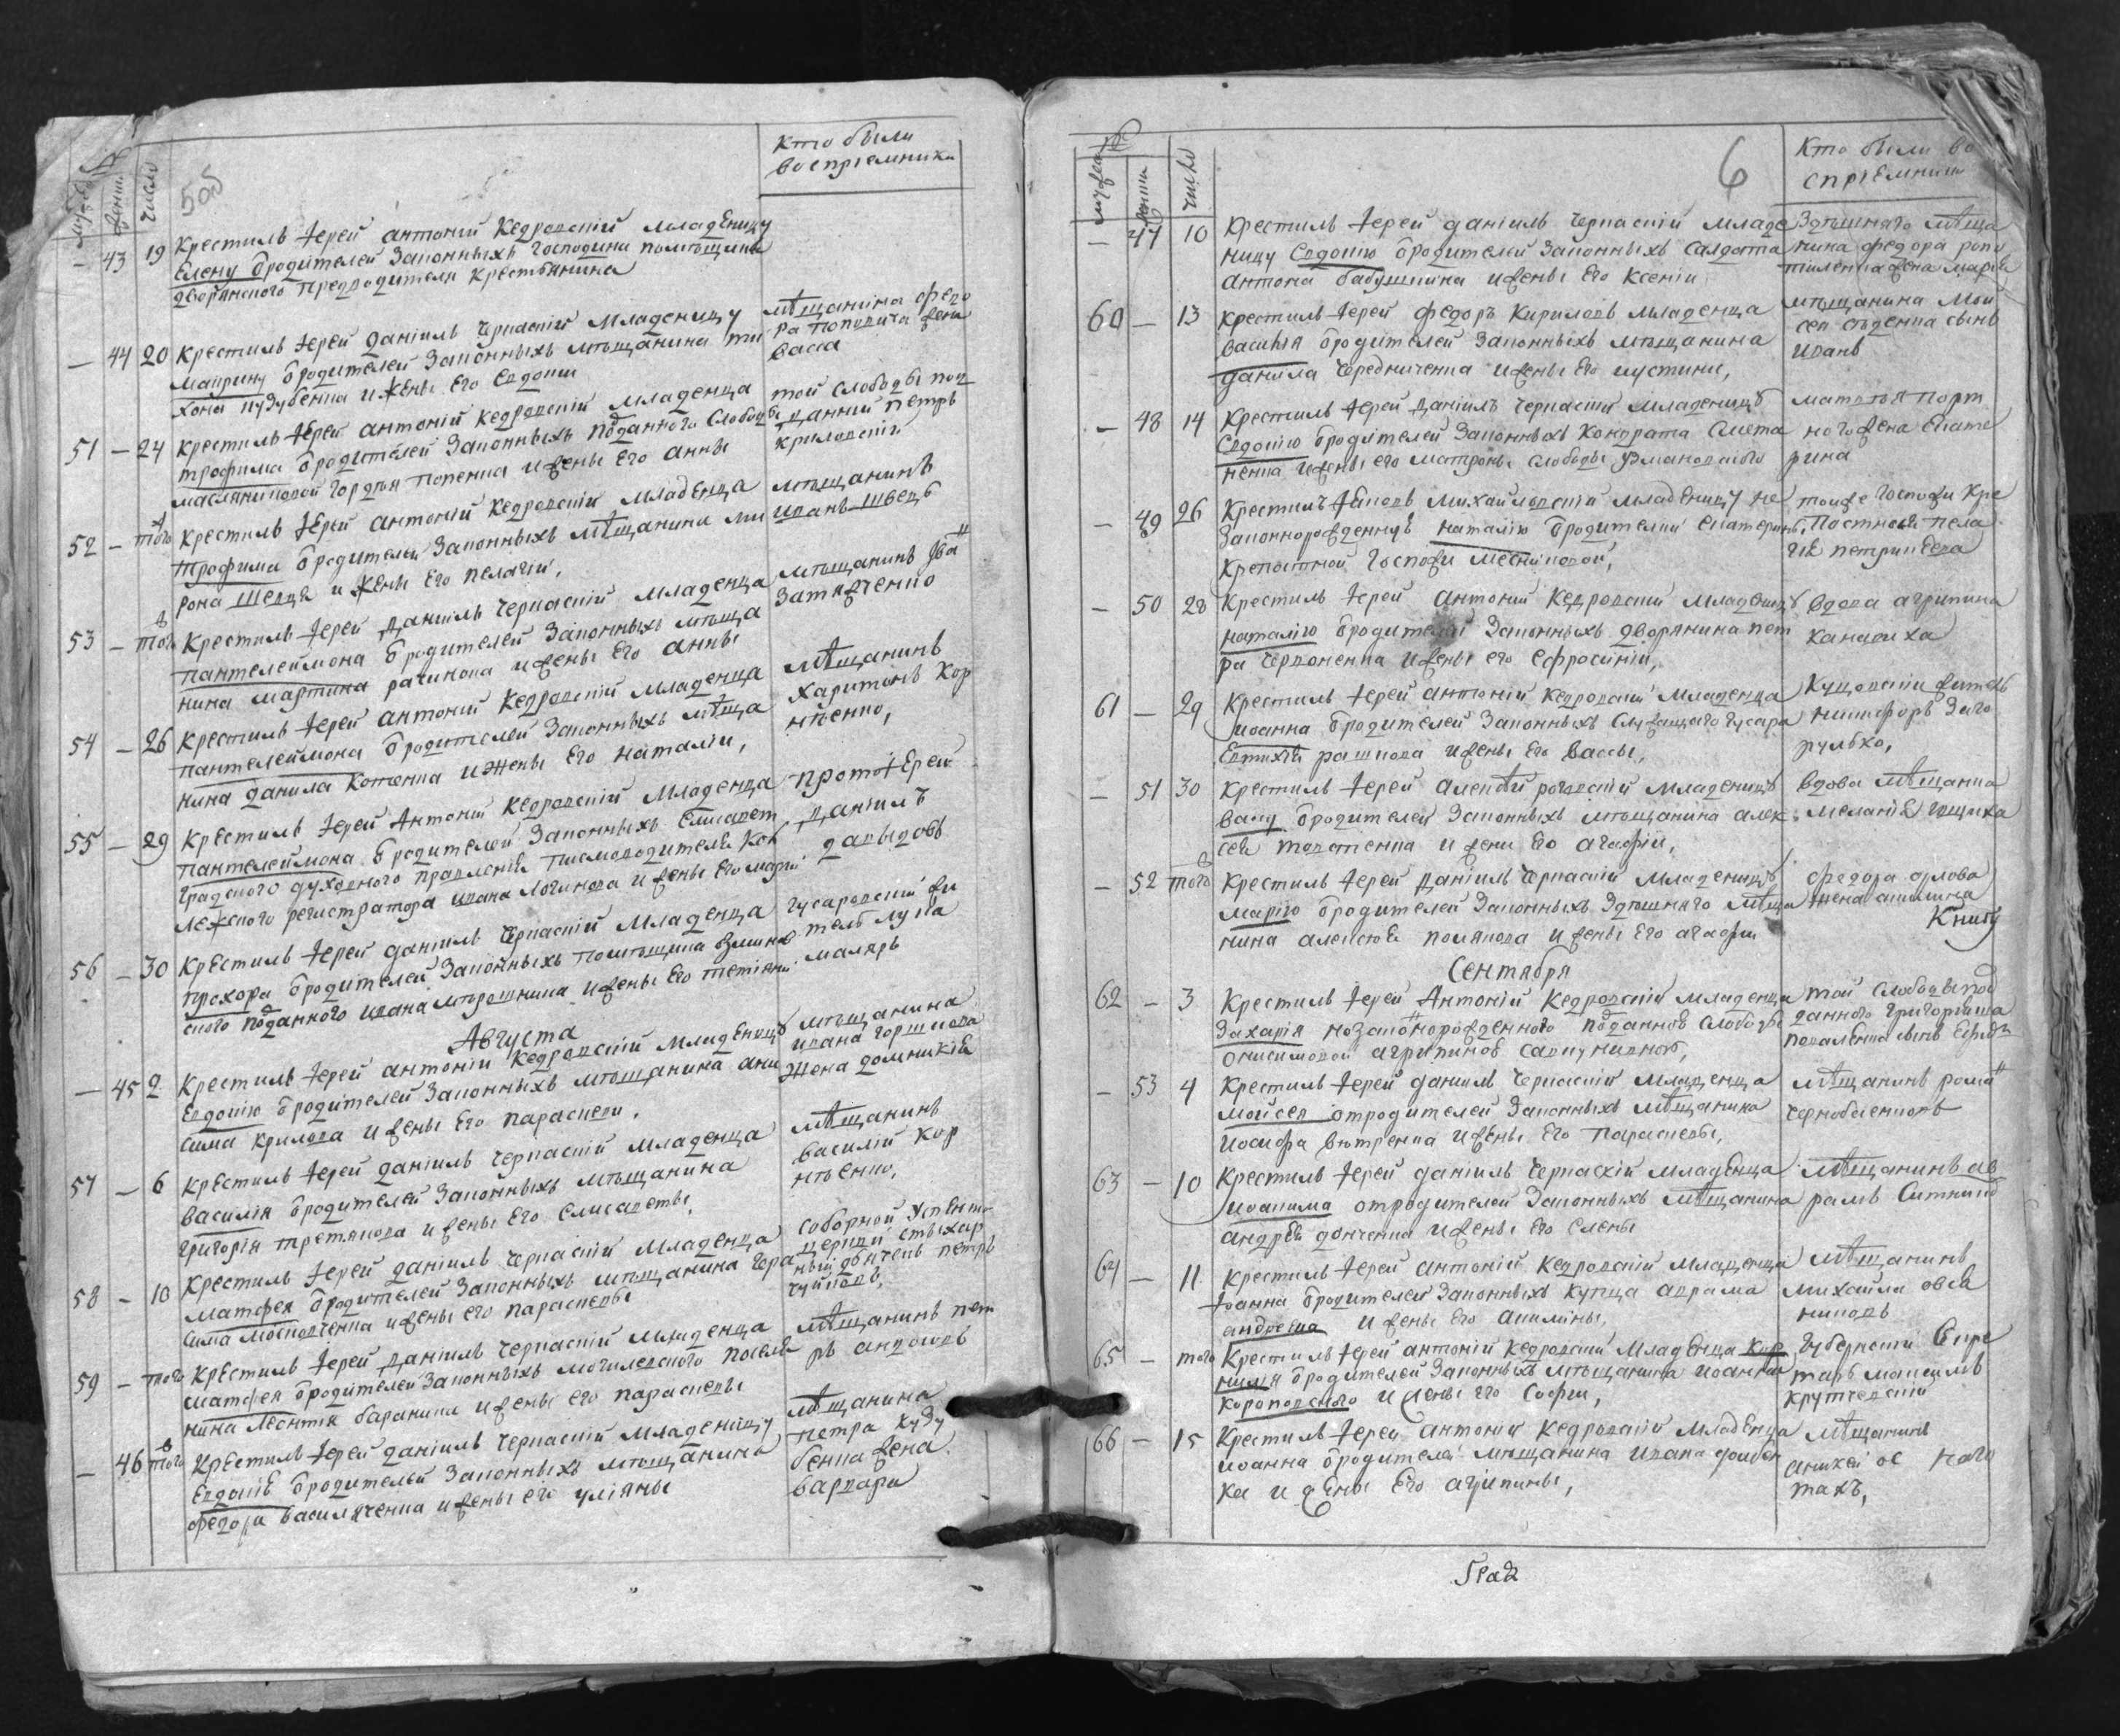 кто были
воспрiемники
число
505
43 19 Крестилъ Iерей антонiй Кедровскiй младеницу
Елену ѿродителей Законныхъ Господини помѣщика
дворянского предводителя крестьянина
44 20 Крестилъ Iерей данiилъ Черкаскiй младеницу
Маврину ѿродителей Законныхъ мѣщанина ти
хона кузубенка и жены Его Евдокiи
мѣщанина федо
ра поповича жена
васса
51 – 24 Крестилъ Iерей антонiй кедровскiй младенца
трофима ѿродителей Законныхъ подданного слободы
масляниковой гордѣя попенка и жены Его анны
той слободы под
данный петръ
криловскiй
52 – того Крестилъ Iерей антонiй Кедровскiй младенца
трофима ѿродителей Законныхъ мѣщанина ми
рона шевца и жены Его пелагiи,
мѣщанинъ
иванъ швецъ
53 – того Крестилъ Iерей данiилъ Черкаскiй младенца
пантелеймона ѿродителей Законныхъ мѣща
нина мартина рачинова и жены Его анны
мѣщанинъ
54 – 26 Крестилъ Iерей антонiй Кедровскiй младенца
пантелеймона ѿродителей Законныхъ мѣща
нина данила котенка и жены Его наталiи,
мѣщанинъ
харитонъ кор
нѣенко,
55 – 29 Крестилъ Iерей Антонiй Кедровскiй младенца
пантелеймона ѿродителей Законныхъ
градского духовного правленiя писмоводителя кол
лежского регистратора ивана логинова и жены Его марiи
протоiерей
данiилъ
давыдовъ
56 – 30 Крестилъ Iерей данiилъ Черкаскiй младенца
прохора ѿродителей Законныхъ помѣщика
ского подданного ивана мѣрошника и жены Его
гусаровскiй жи
тель лука
маляръ
Августа
45 2 Крестилъ Iерей антонiй Кедровскiй младеницу
Евдокiю ѿродителей Законныхъ мѣщанина ани
сима крилова и жены Его параскеви.
мѣщанина
ивана горшкова
жена домникiя
57 – 6 Крестилъ Iерей данiилъ Черкаскiй младенца
василiя ѿродителей Законныхъ мѣщанина
григорiя третякова и жены Его Елисаветы,
мѣщанинъ
василiй кор
нѣенко,
58 – 10 Крестилъ Iерей данiилъ Черкаскiй младенца
матфея ѿродителей Законныхъ мѣщанина гера
сима московченка и жены его параскевы
соборной успенс
церкви стихар
ный дьячекъ петръ
чуйковъ,
59 – того Крестилъ Iерей данiилъ Черкаскiй младенца
матфея ѿродителей Законныхъ могилевского поселя
нина леонтiя баранника и жены его параскевы
мѣщанинъ пет
ръ
46 того Крестилъ Iерей данiилъ Черкаскiй младеницу
Евдокiю ѿродителей Законныхъ мѣщанина
федора василяченка и жены его улiяны
мѣщанина
петра кузу
бенка жена
варвара
6
число
кто были во
спрiемники
47 10 Крестилъ Iерей данiилъ Черкаскiй младе
ницу Евдокiю ѿродителей Законныхъ салдата
антона бабушкина и жены Его Ксенiи
Здѣшняго мѣща
нина федора
жена марiя
60 – 13 Крестилъ Iерей федоръ Кириловъ младенца
василiя ѿродителей Законныхъ мѣщанина
данила Чередниченка и жены Его иустины,
мѣщанина мои
сея сынъ
иванъ
– 48 14 Крестилъ Iерей данiилъ Черкаскiй младеницу
Евдокiю ѿродителей Законныхъ Кондрата смета
ненка и жены его матроны слободы
матвѣя порт
ного жена Екате
рина
– 49 26 Крестилъ Iяковъ михайловскiй младеницу не
Законнорожденную наталiю ѿродителки Екатерины
крепостной Госпожи
тоиже Госпожи кре
постной пела
гiя петрикѣева
– 50 28 Крестилъ Iерей антонiй Кедровскiй младеницу
наталiю ѿродителей Законныхъ дворянина пет
ра червоненка и жены его Ефросинiи,
вдова агрипина
канаевиха
61 – 29 Крестилъ Iерей антонiй Кедровскiй младенца
иоанна ѿродителей Законныхъ служащаго гусара
Евтихiя рашкова и жены Его вассы,
житель
никифоръ заго
рулько,
– 51 30 Крестилъ Iерей алексѣй роговскiй младеницу
вассу ѿродителей Законныхъ мѣщанина алек
сея толстенка и жены Его агафiи,
вдова мѣщанка
меланiя
– 52 того Крестилъ Iерей данiилъ Черкаскiй младеницу
марiю ѿродителей Законныхъ Здѣшняго мѣща
нина алексѣя полякова и жены Его агафiи
федора орлова
жена акилина
Книгу
Сентября
62 – 3 Крестилъ Iерей Антонiй Кедровскiй младенца
Захарiя незаконорожденного подданной слободы
онисимовой агрипиной
той слободы под
данного григорiя
коваленка сынъ
– 53 4 Крестилъ Iерей данiилъ Черкаскiй младенца
мойсея отродителей Законныхъ мѣщанина
иосифа вютренка и жены Его параскевы,
мѣщанинъ роман
63 – 10 Крестилъ Iерей данiилъ Черкаскiй младенца
иоакима отродителей Законныхъ мѣщанина
андрея донченка и жены Его Елены
мѣщанинъ ав
рамъ Ситникъ
64 – 11 Крестилъ Iерей антонiй Кедровскiй младенца
Iоанна ѿродителей Законныхъ купца аврама
андреева и жены Его акилины,
мѣщанинъ
михайла овся
никовъ
65 – того Крестилъ Iерей антонiй Кедровскiй младенца кор
нилiя ѿродителей Законныхъ мѣщанина иоанна
короповского и жены Его софiи,
губернскiй секре
таръ максимъ
крутчевскiй
66 – 15 Крестилъ Iерей антонiй Кедровскiй младенца
иоанна ѿродителей мѣщанина ивана
ка и жены Его агрипины,
мѣщанинъ